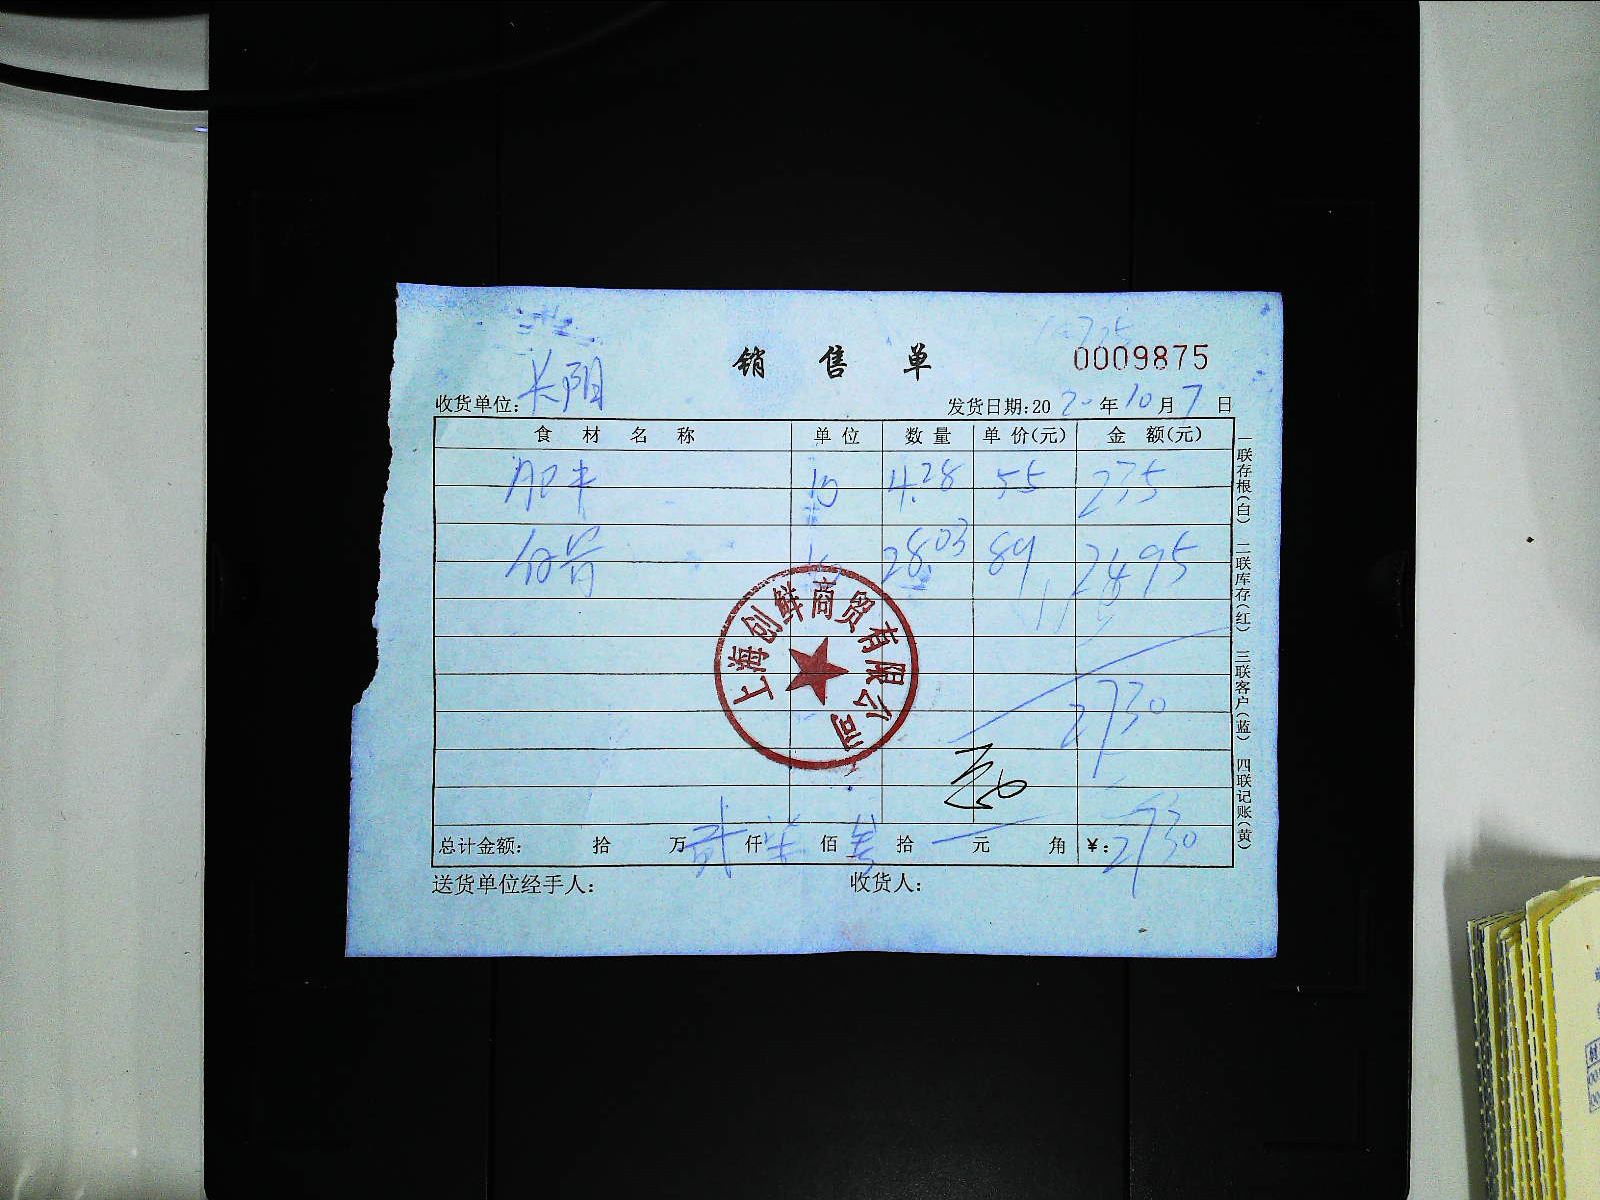 销售单
0009875
收货单位: 长阳
发货日期:2020年10月7日
食材名称 单位 数量 单价(元) 金额(元)
肥牛 4.28 55 235
28.03 89 2495
2730
上海创鲜商贸有限公司
总计金额: 拾 万 贰 仟 柒 佰 叁 拾 元 角 ¥: 2730
送货单位经手人: 收货人:
一联存根(白) 二联库存(红) 三联客户(蓝) 四联记账(黄)